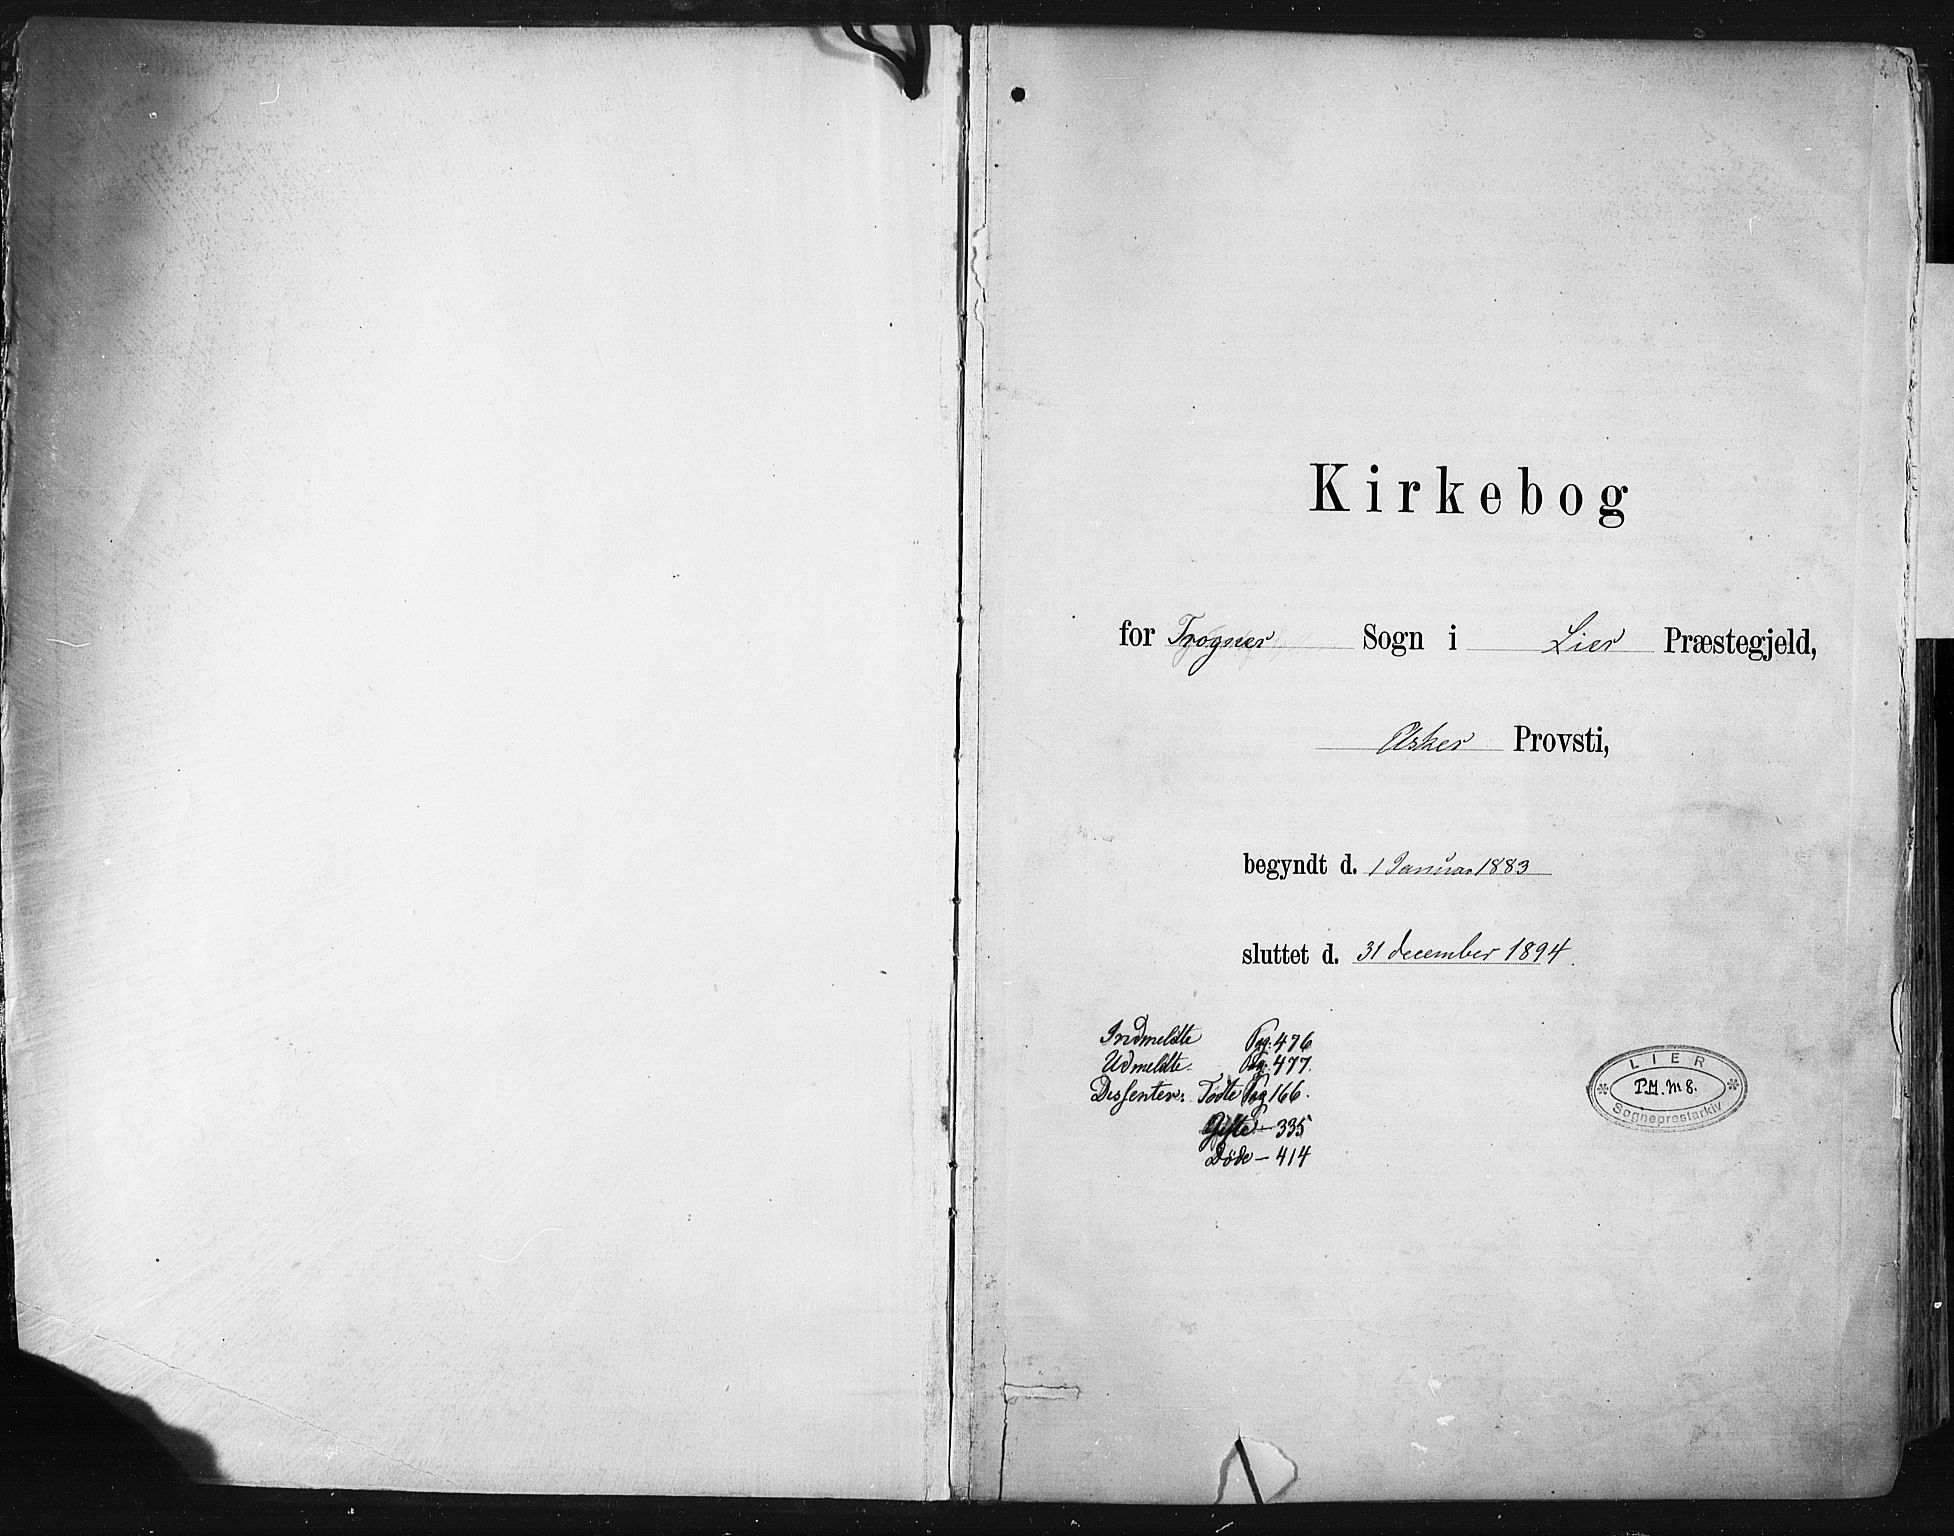 Kirkebog
for Frogner Sogn i Lier Præstegjeld,
Asker Provsti,
begyndt d. 1 Januar 1883
sluttet d. 31 december 1894.
Indmeldte Pag: 476
Udmeldte Pag: 477.
Dissenter: Fødte Pag 166.
Gifte — 335
Døde — 414
LIER
P.H. No 8.
Sogneprestarkiv